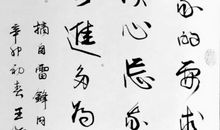 的要求
心忘我
進多为
摘自雷鋒日
辛卯初春王